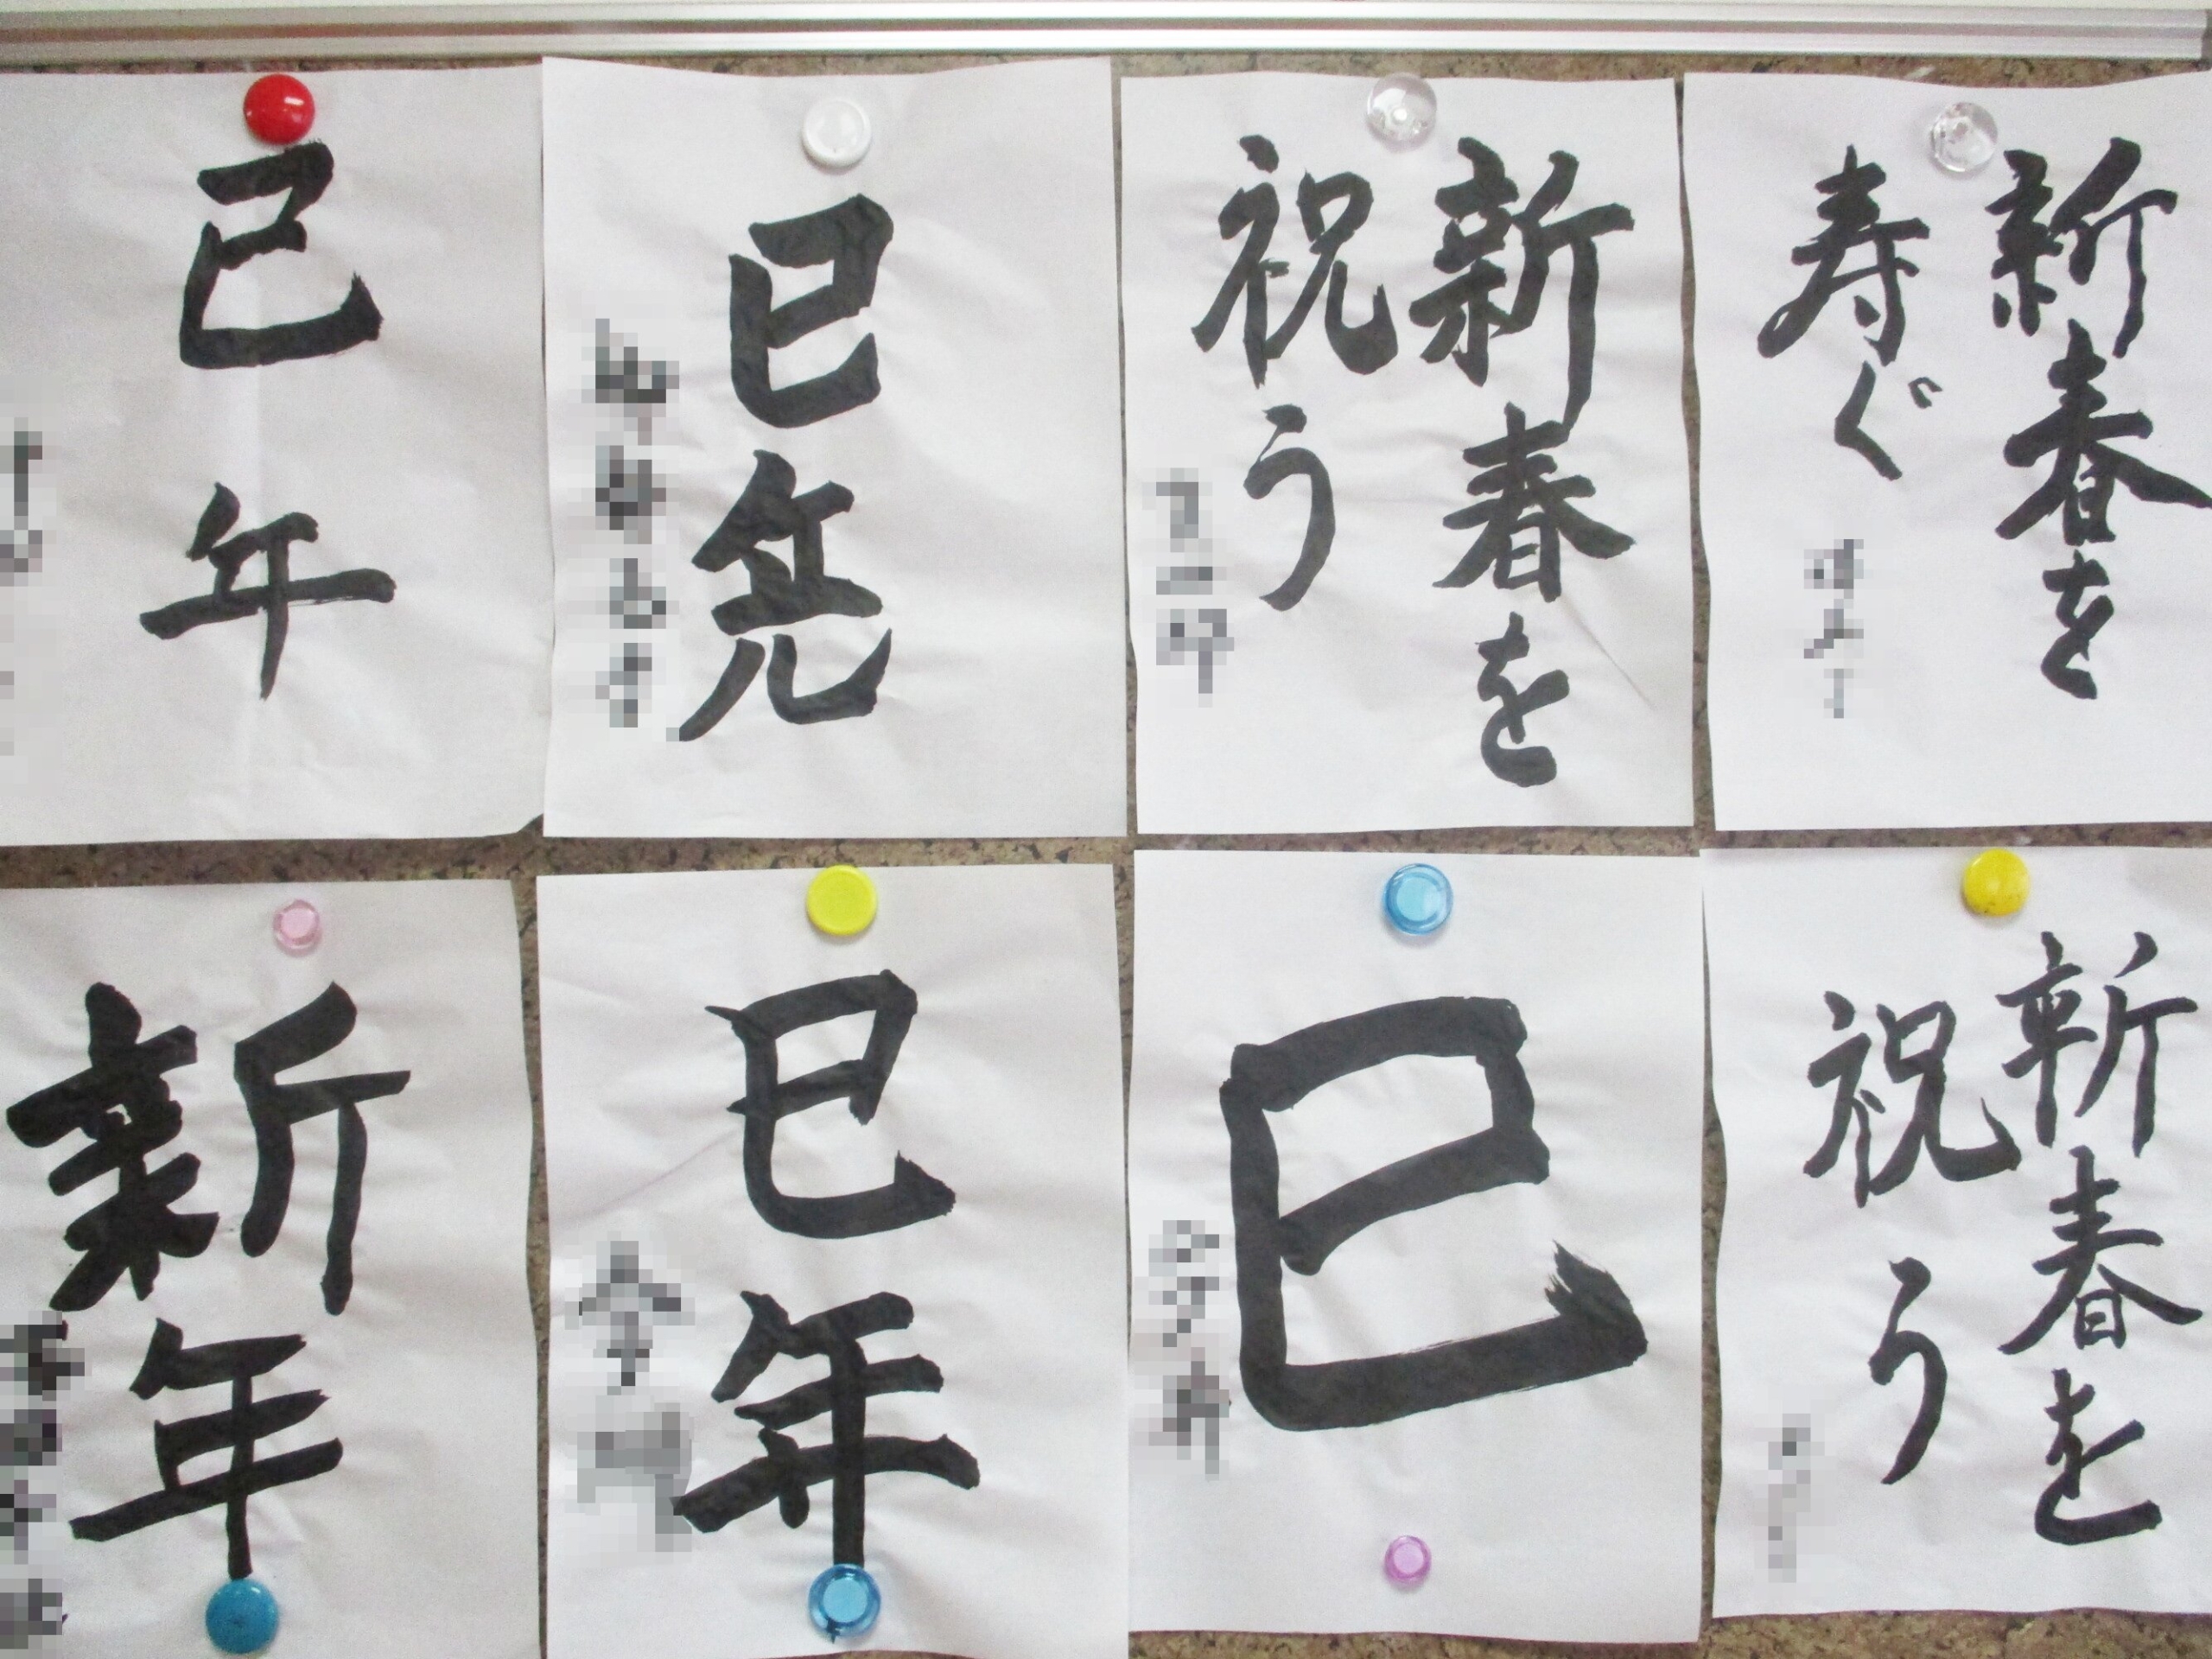 己年
巳
新春を
祝う
新春を
寿ぐ
新年
巳年
巳
新春を
祝う